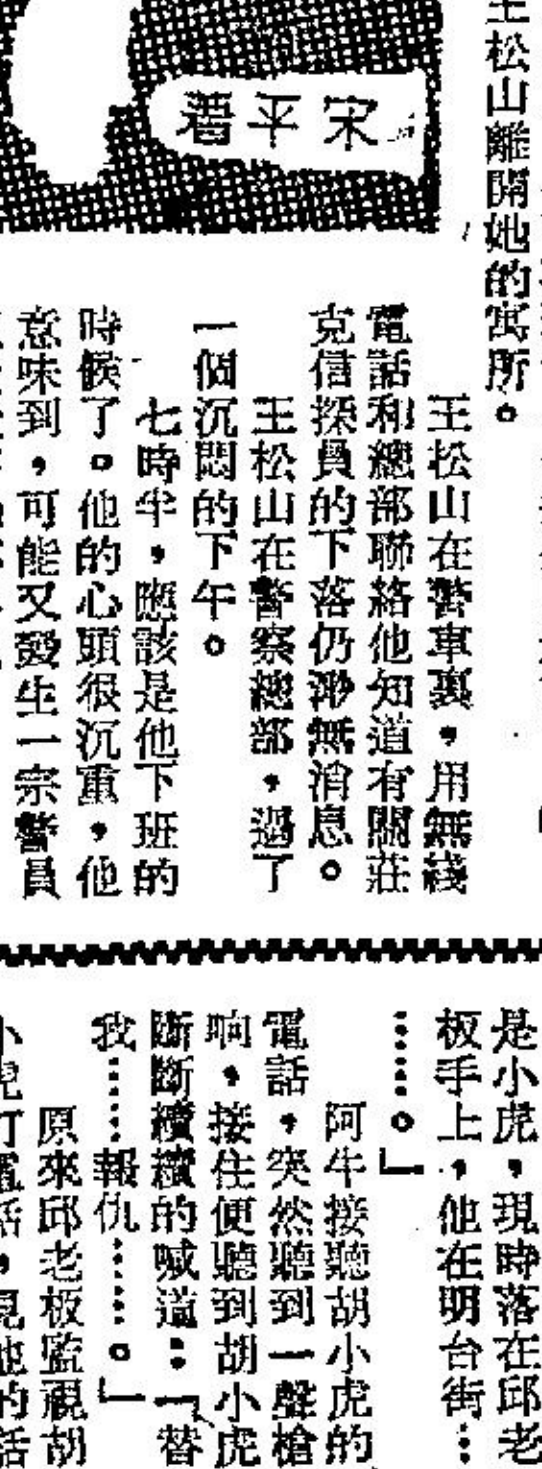 宋平著
王松山離開她的寓所。
王松山在警車裏，用無綫
電話和總部聯絡他知道有關莊
克信探員的下落仍渺無消息。
王松山在警察總部，過了
一個沉悶的下午。
七時半，應該是他下班的
時候了。他的心頭很沉重，他
意味到，可能又發生一宗警員
是小虎，現時落在邱老
板手上，他在明台街⋯
⋯⋯。」
阿牛接聽胡小虎的
電話，突然聽到一聲槍
响，接住便聽到胡小虎
斷斷續續的喊道：「替
我⋯⋯報仇⋯⋯。」
原來邱老板監視胡
小虎打電話，見他的話